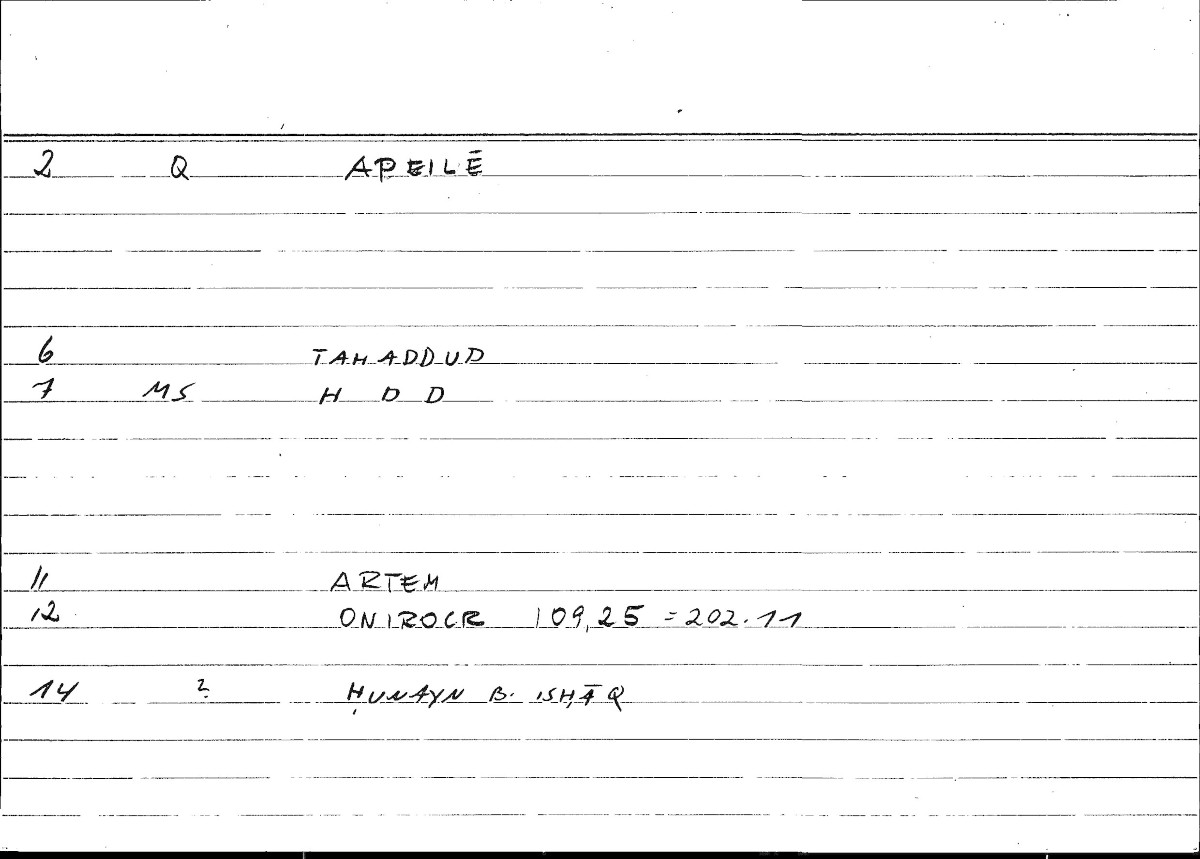 2 Q APEILĒ
6 TAHADDUD
7 MS H D D
11 ARTEM
12 ONIROCR 109,25 = 202.11
14 ? ḤUNAYN B. ISḤĀQ